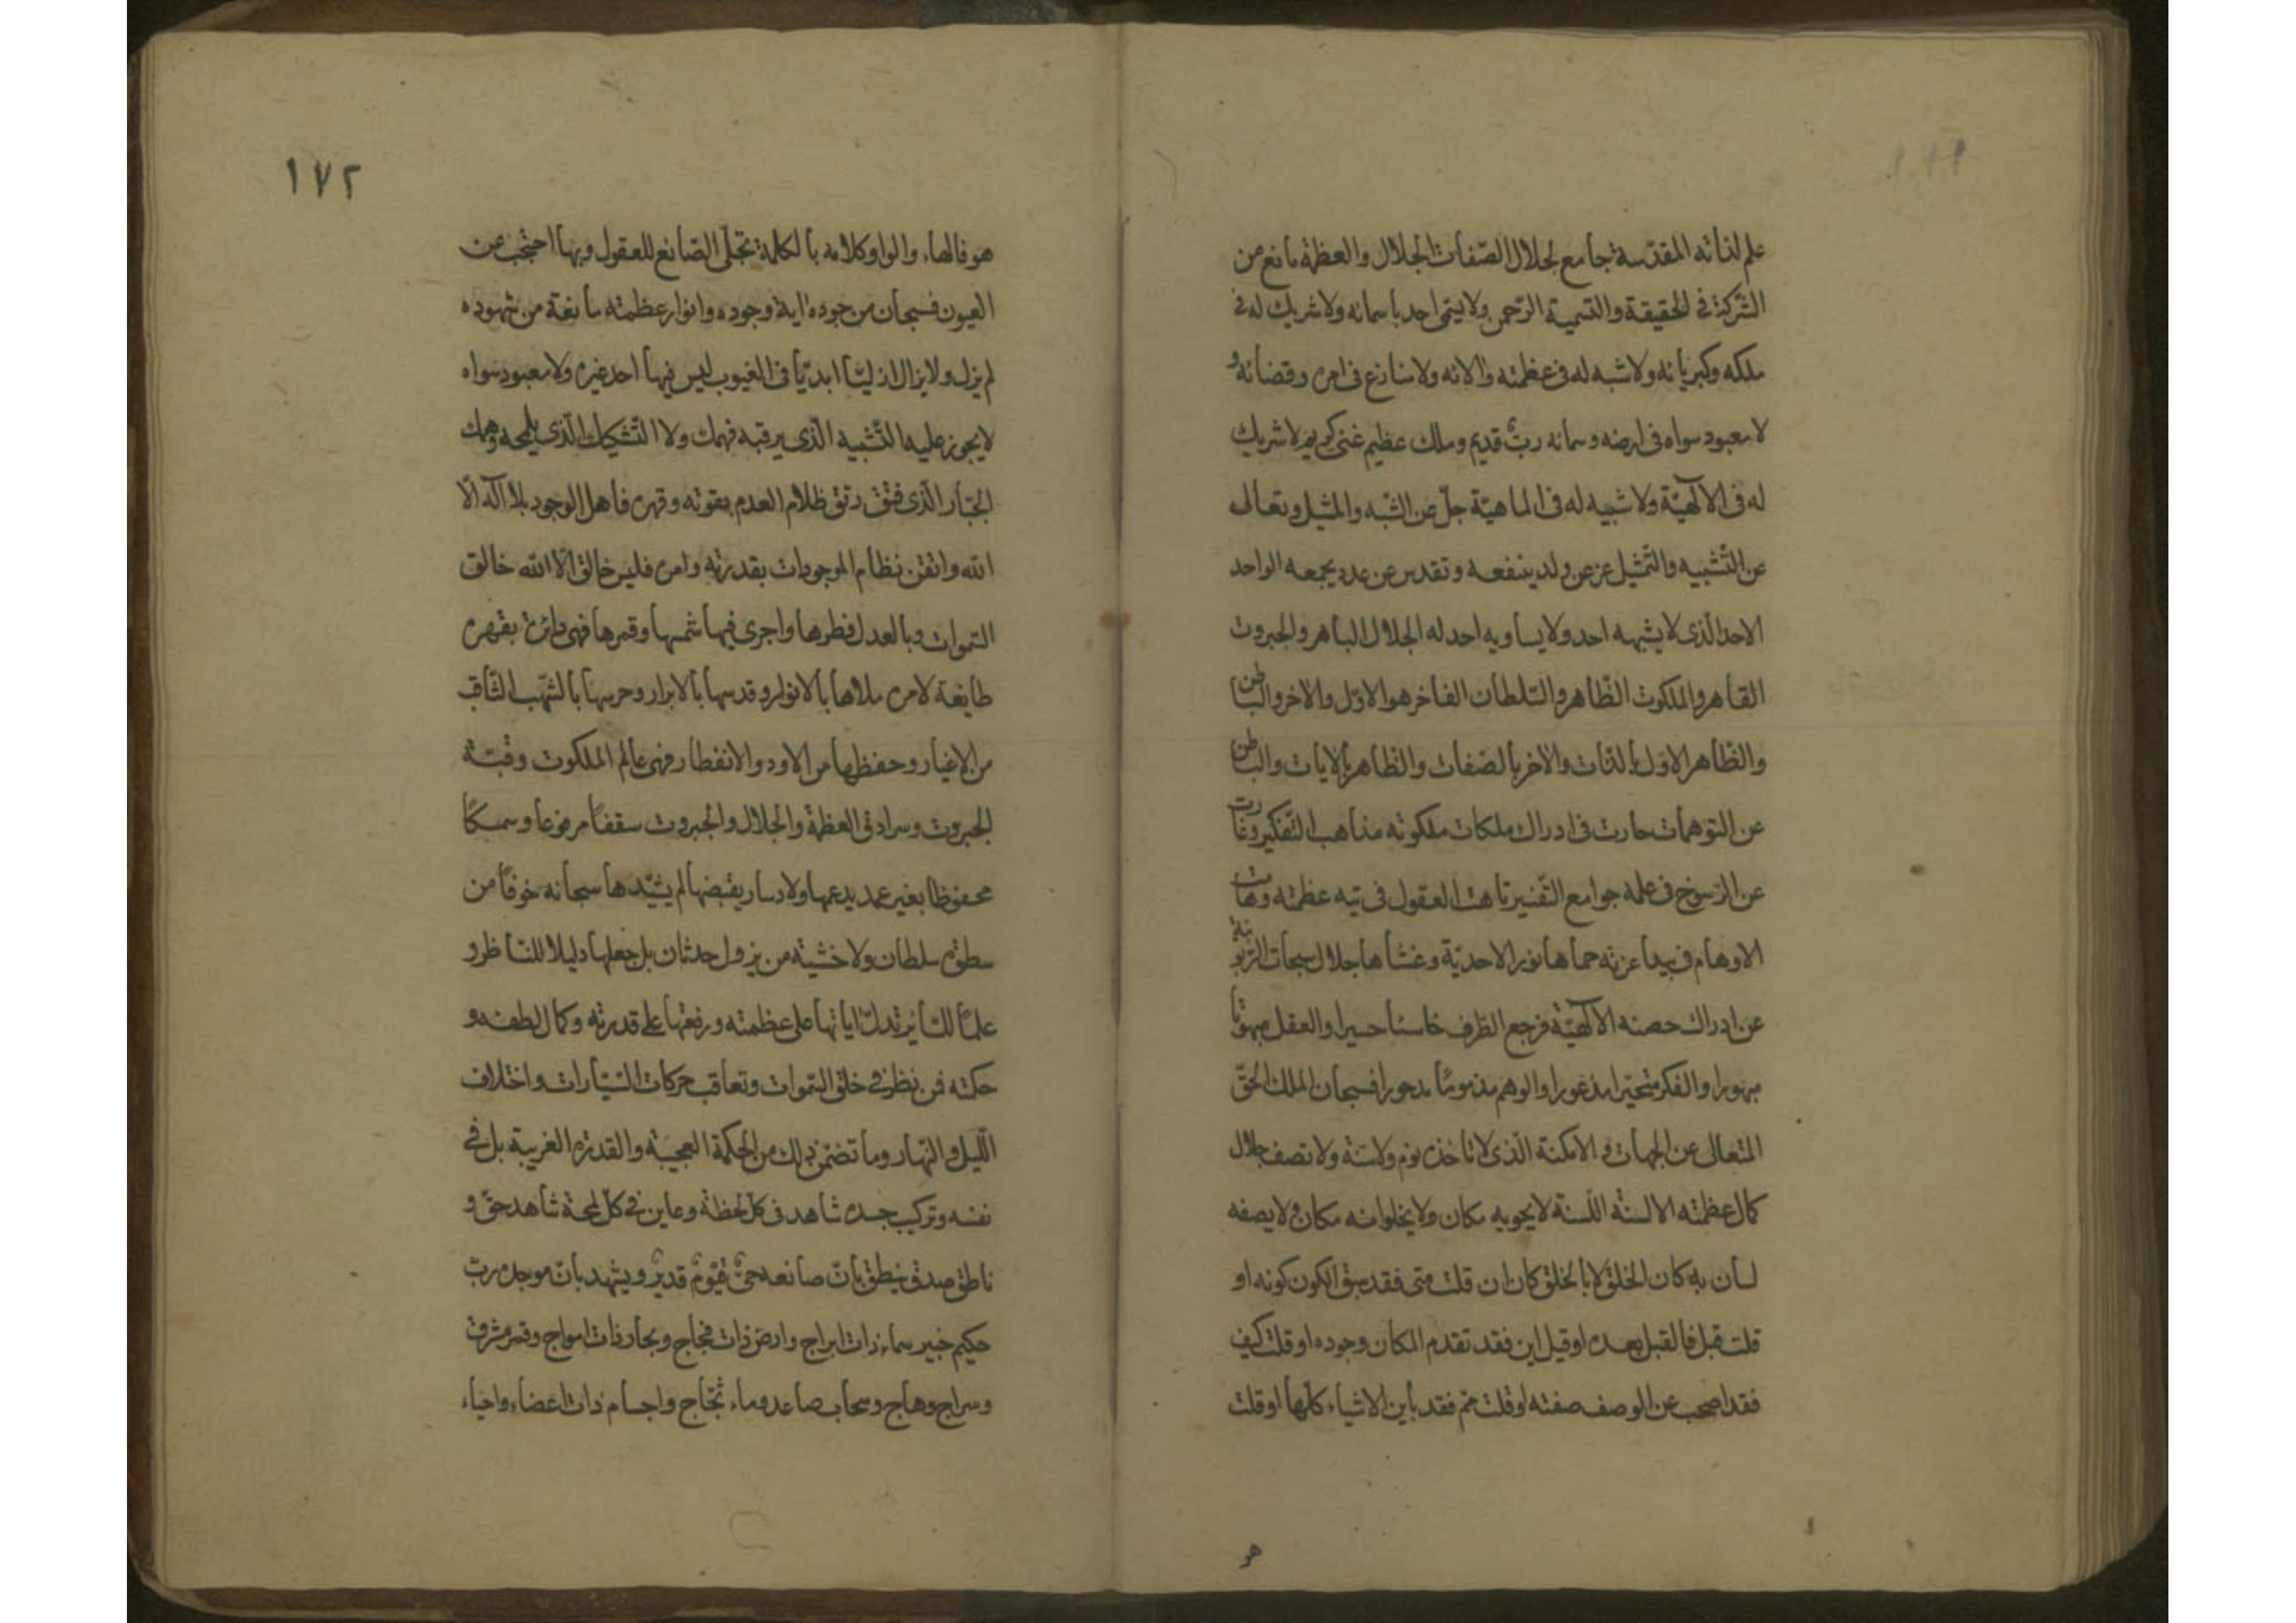 علم لذاته المقدّسة جامع لجلال الصّفات الجلال والعظمة مانع من
الشّركة فى الحقيقة والتّسمية الرّحمن ولا يتمى احد باسمائه ولا شريك له فى
ملكه وكبريائه ولا شبه له فى عظمته والائه ولا منازع فى امره وقضائه و
لا معبود سواه فى ارضه وسمائه ربّ قديم وملك عظيم غنى كريم لا شريك
له فى الآلهيّة ولا شبيه له فى الماهيّة جلّ عن الشّبه والمثيل وتعالى
عن التّشبيه والتّمثيل عز عن ولد ينفعه وتقدس عن عدد يجمعه الواحد
الاحد الّذى لا يشبهه احد ولا يساويه احد له الجلال الباهر والجبروت
القاهر والملكوت الظّاهر والسّلطان الفاخر هو الاوّل والاخر والباطن
والظّاهر الاوّل بالذّات والاخر بالصّفات والظّاهر بالايات والباطن
عن التوهمات حارت فى ادراك ملكات ملكوته مذاهب التّفكير وغارت
عن الرّسوخ فى علمه جوامع التّفسير تاهت العقول فى تيه عظمته وهامت
الاوهام فى بيدا عزته حماها نور الاحديّة وغشاها جلال سبحات الرّبوبية
عن ادراك حصنه الآلهيّة فرجع الطّرف خاسئا حسيرا والعقل مبهوتا
مبهورا والفكر متحيّرا مذعورا والوهم مذموما مدحورا فسبحان الملك الحقّ
المتعالى عن الجهات والامكنة الّذى لا تاخذه نوم ولا سنة ولا تصف جلال
كمال عظمته الالسنة اللّسنة لا يحويه مكان ولا يخلوا منه مكان ولا يصفه
لسان به كان الخلق لا بالخلق كان ان قلت متى فقد سبق الكون كونه او
قلت قبل فالقبل بعده او قيل اين فقد تقدم المكان وجوده او قلت كيف
فقد احتجب عن الوصف صفته او قلت مم فقد باين الاشياء كلّها او قلت
هو
١٧٢
هو فالهاء والواو كلامه بالكلمة تجلّى الصّانع للعقول وبها احتجب عن
العيون فسبحان من جوده اية وجوده وانوار عظمته مانعة من شهوده
لم يزل ولا يزال ازليّا ابديّا فى الغيوب ليس فيها احد غيره ولا معبود سواه
لا يجوز عليه التّشبيه الّذى يرقبه فهمك ولا التّشكيك الّذى يلمحه وهمك
الجبّار الّذى فتق رتق ظلام العدم بقوته وقهره فاهل الوجود بلا اله الّا
اللّه واتقن نظام الموجودات بقدرته وامره فليس خالق الّا اللّه خالق
السّموات وبالعدل فطرها واجرى فيها شمسها وقمرها فهى دائرة بقهره
طايعة لامره ملاها بالانوار وقدسها بالابرار وحرسها بالشّهب الثّاقب
من الاغيار وحفظها من الاود والانفطار فهى عالم الملكوت وقبّة
الجبروت وسرادق العظمة والجلال والجبروت سقفا مرفوعا وسمكًا
محفوظا بغير عمد يدعمها ولا دسار يقبضها لم يشيّدها سبحانه خوفا من
سطوة سلطان ولا خشية من نزول حدثان بل جعلها دليلا للنّاظر و
علما للسّاير تدلّ اياتها على عظمته ورفعتها على قدرته وكمال لطفه و
حكمته فمن نظر فى خلق السّموات وتعاقب حركات السّيّارات واختلاف
اللّيل والنّهار وما تضمّن ذلك من الحكمة العجيبة والقدرة الغريبة بل فى
نفسه وتركيب جسده شاهد فى كلّ لحظة وعاين فى كلّ لمحة شاهد حقّ و
ناطق صدق ينطق بانّ صانعه حىّ قيّوم قدير ويشهد بانّ موجده ربّ
حكيم خبير سماء ذات ابراج وارض ذات فجاج وبحار ذات امواج وقمر مشرق
وسراج وهاج وسحاب صاعد وماء ثجّاج واجسام ذات اعضاء واحياء